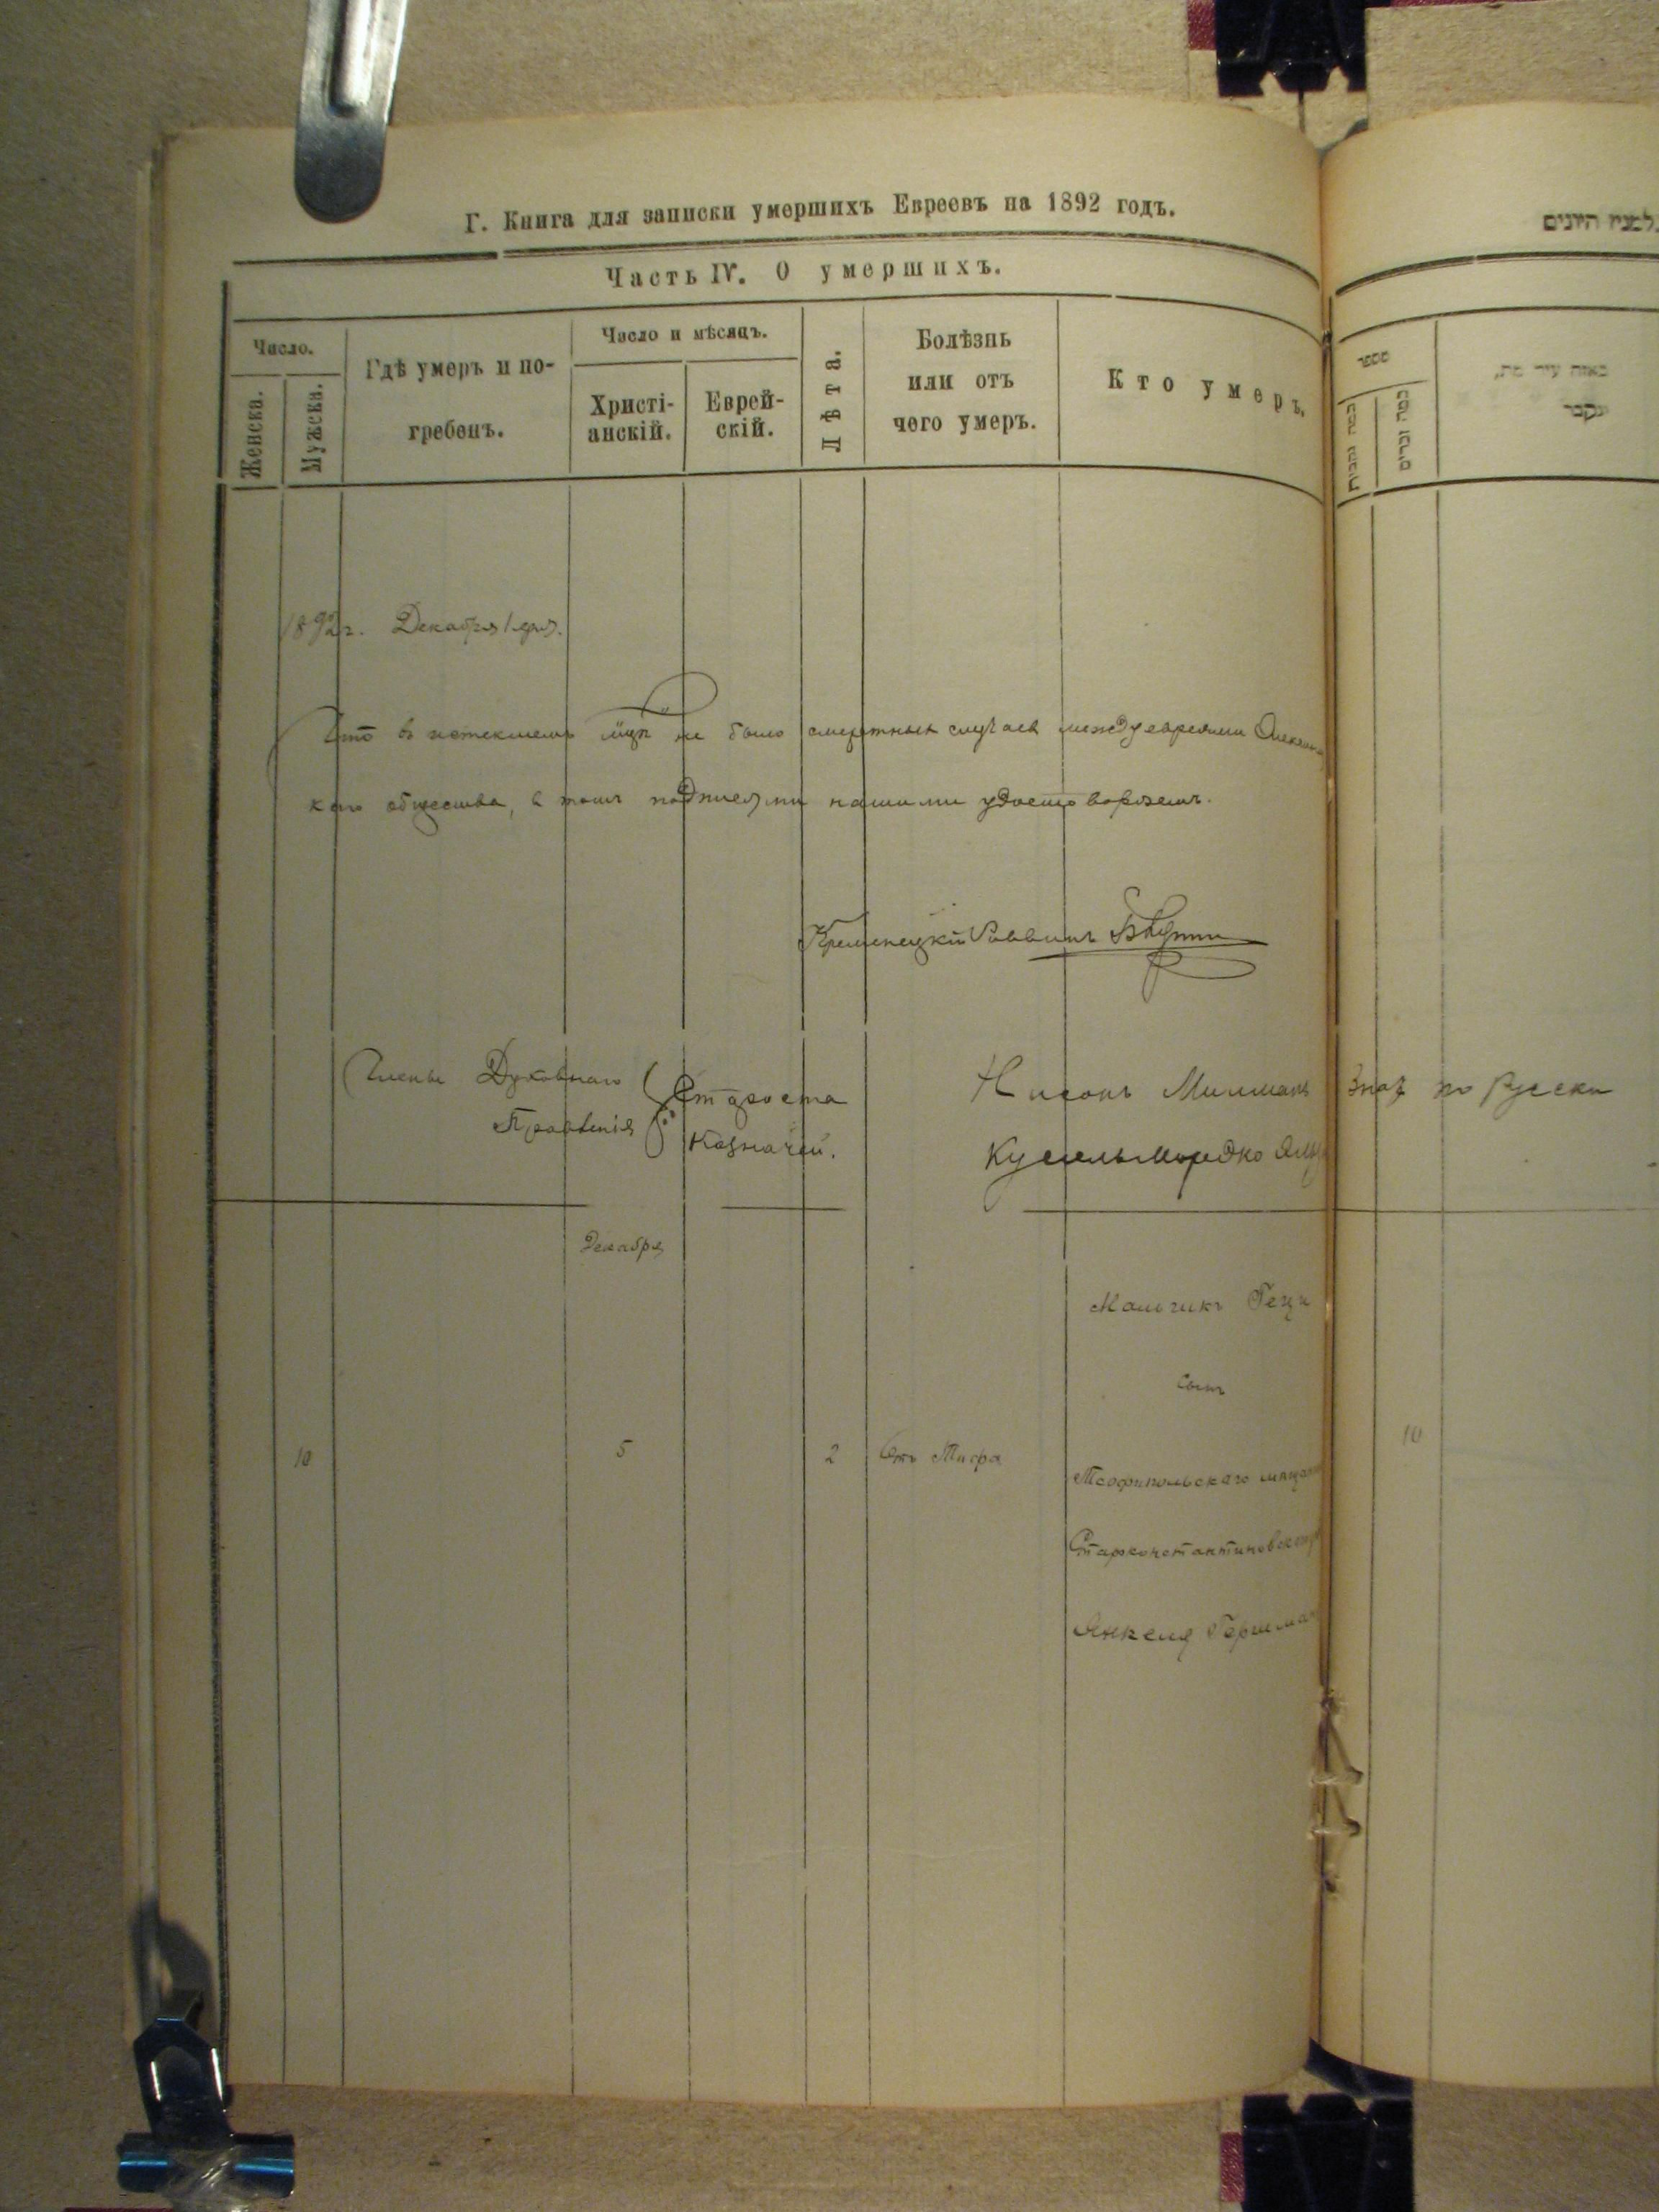 Г. Книга для записки умершихъ Евреевъ на 1892 годъ.
Часть IV. О умершихъ.
Число.
Женска.
Мужска.
Гдѣ умеръ и по-
гребенъ.
Число и мѣсяцъ.
Христі-
анскій.
Еврей-
скій.
Лѣта.
Болѣзнь
или отъ
чего умеръ.
Кто умеръ.
1892 г. Декабря 1 дня.
Что в истекшемъ мцѣ не было смертных случаев между евреями
каго общества, в томъ подписями нашими удостоверяемъ.
Кременецкій Раввинъ
Члены Духовнаго
Правленія
Староста
Казначей.
Нисонъ Милманъ
Знаю по Русски
Кусель Мордко
Декабря
Мальчикъ
Сынъ
10
5
2
Отъ Тифа
Теофипольскаго мещан
Староконстантиновск
Янкеля Гершма
10
מספר